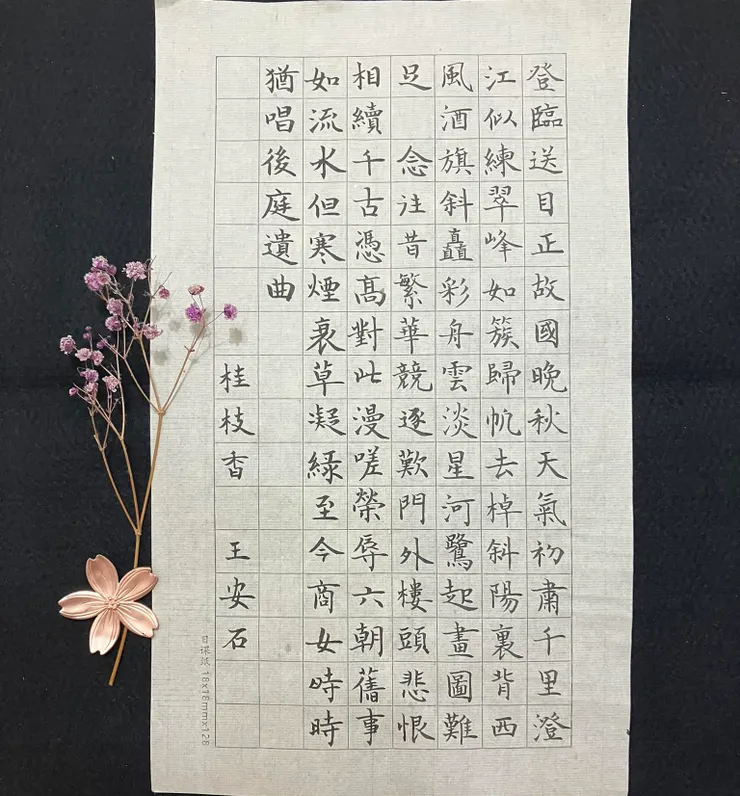 登臨送目正故國晚秋天氣初肅千里澄
江似練翠峰如簇歸帆去棹斜陽裏背西
風酒旗斜矗彩舟雲淡星河鷺起畫圖難
足 念往昔繁華競逐歎門外樓頭悲恨
相續千古憑高對此漫嗟榮辱六朝舊事
如流水但寒煙衰草凝綠至今商女時時
猶唱後庭遺曲
桂枝香 王安石
日課紙 18x18mmx128